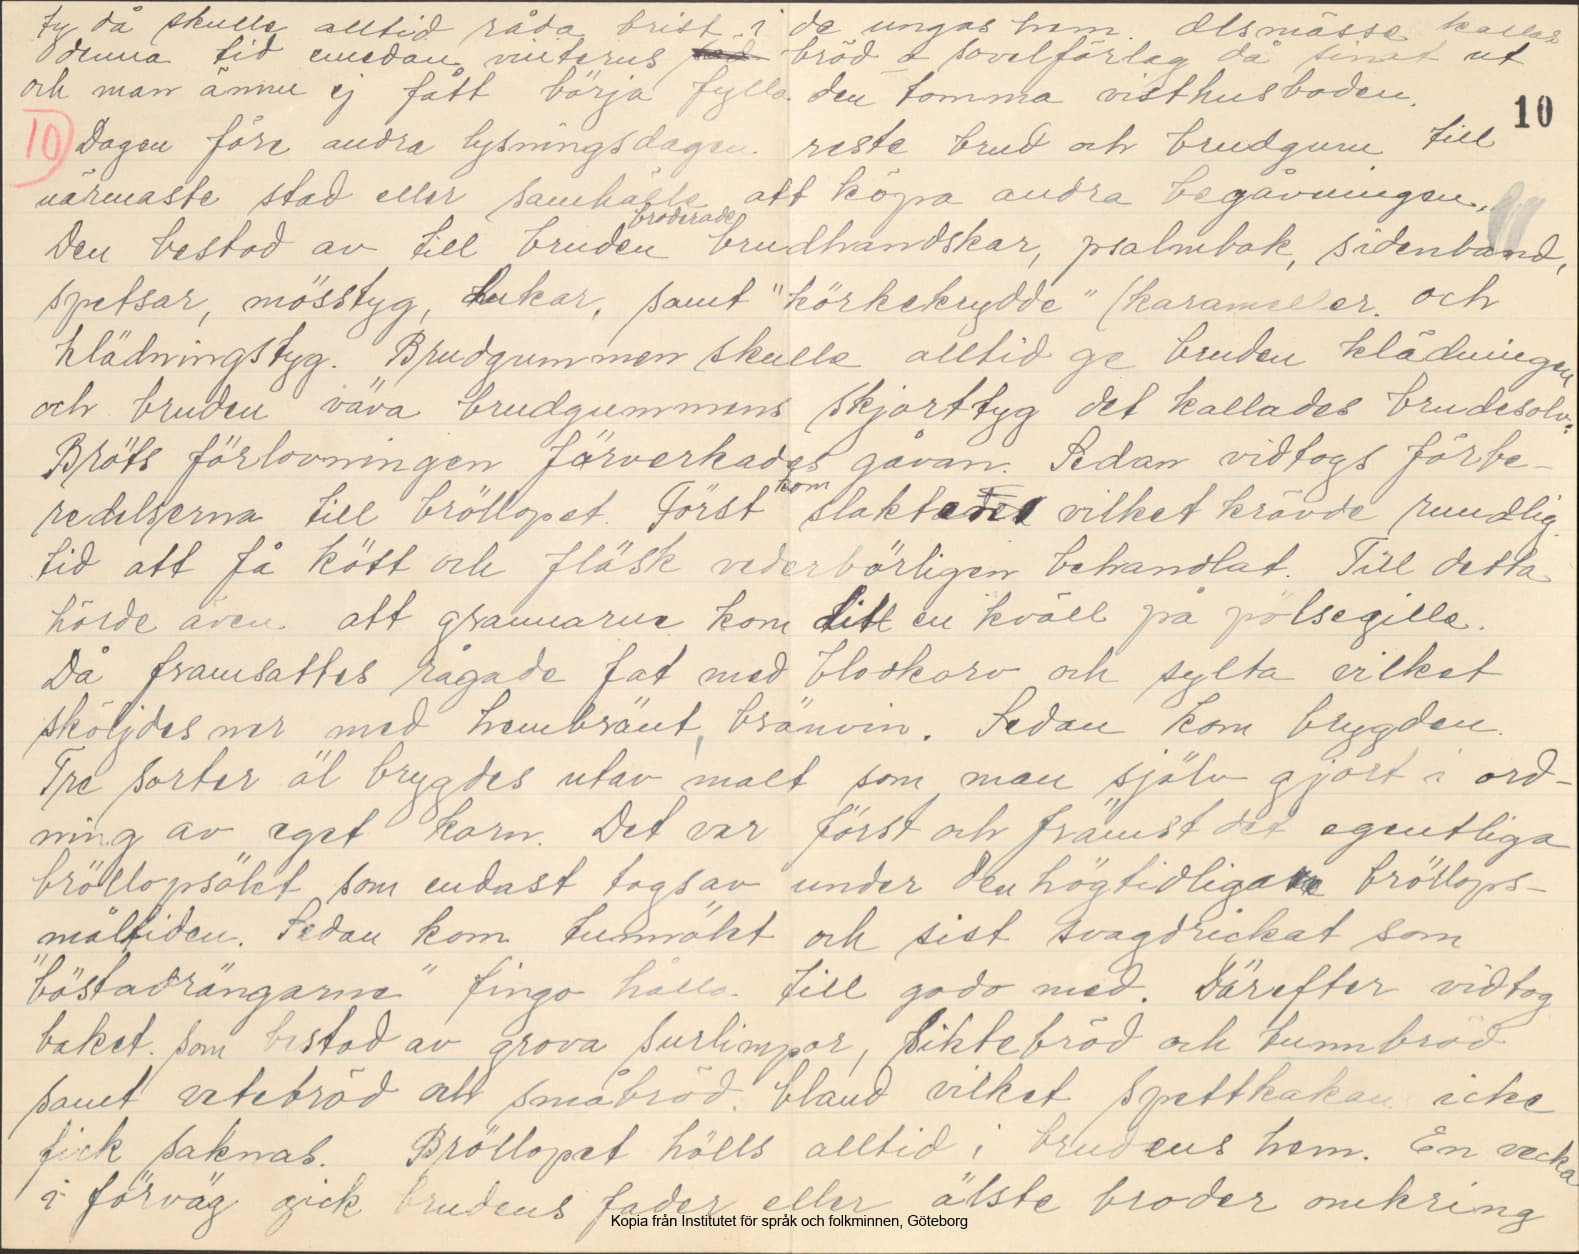 ty då skulle alltid råda brist i de ungas hem. Olsmässe kallas
denna tid emedan vinterns bröd o sovelförlag då sinat ut
och man ännu ej fått börja fylla den tomma visthusboden.
10
10) Dagen före andra lysningsdagen reste brud och brudgum till
närmaste stad eller samhälle att köpa andra begåvningen.
broderade
Den bestod av till bruden brudhandskar, psalmbok, sidenband,
spetsar, mösstyg, dukar, samt "körkekrydde" (karameller och
klädningstyg. Brudgummen skulle alltid ge bruden klädningen
och bruden väva brudgummens skjorttyg det kallades brudesolv.
Bröts förlovningen förverkades gåvan. Sedan vidtogs förbe-
redelserna till bröllopet. Först kom slakten vilket krävde rundlig
tid att få kött och fläsk vederbörligen behandlat. Till detta
hörde även att grannarne kom dit en kväll på pölsegille.
Då framsattes rågade fat med blodkorv och sylta vilket
sköljdes ner med hembränt brännvin. Sedan kom brygden.
Tre sorter öl brygdes utav malt som man själv gjort i ord-
ning av eget korn. Det var först och främst det egentliga
bröllopsölet som endast togs av under den högtidliga bröllops-
måltiden. Sedan kom tunnölet och sist svagdrickat som
"böstadrängarne" fingo hålla till godo med. Därefter vidtog
baket som bestod av grova surlimpor, siktebröd och tunnbröd
samt vetebröd och småbröd bland vilket spettkakan icke
fick saknas. Bröllopet hölls alltid i brudens hem. En vecka
i förväg gick brudens fader eller älste broder omkring
Kopia från Institutet för språk och folkminnen, Göteborg